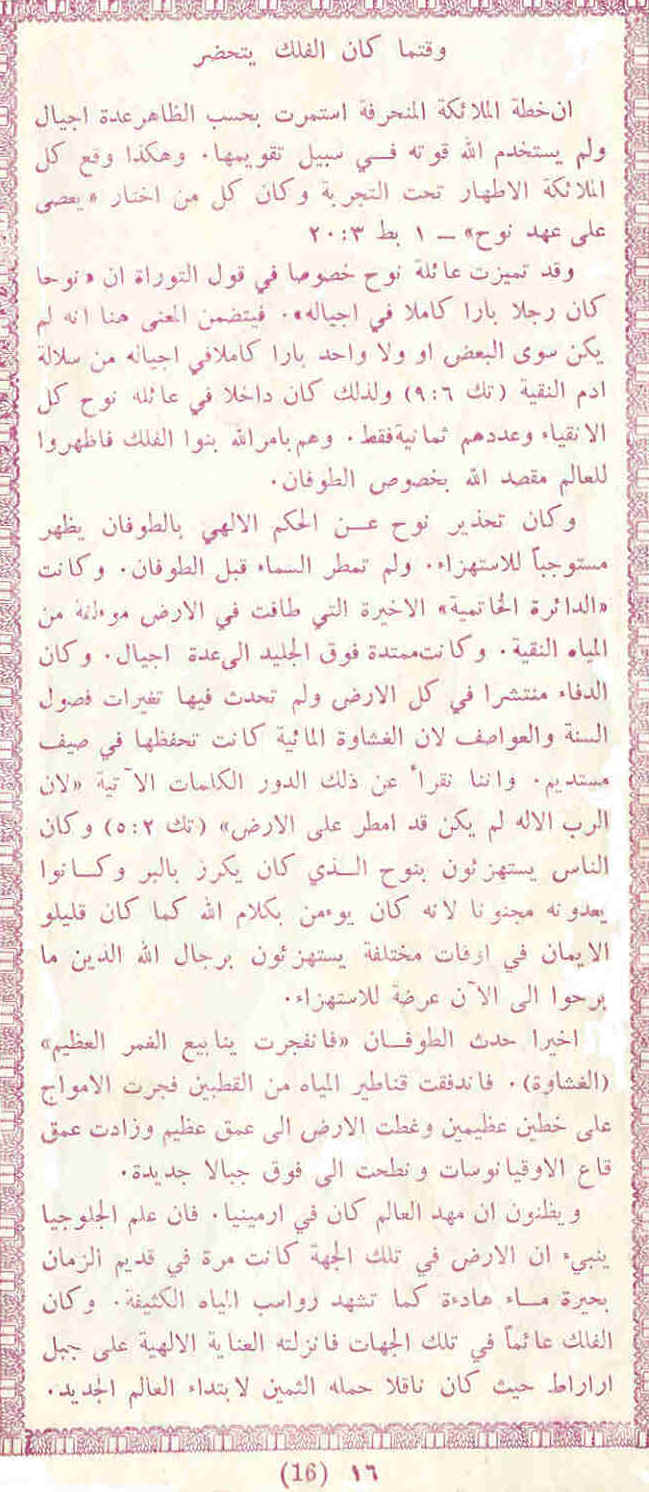 وقتما كان الفلك يتحضر
ان خطة الملائكة المنحرفة استمرت بحسب الظاهر عدة اجيال
ولم يستخدم الله قوته فـــي سبيل تقويمها. وهكذا وقع كل
الملائكة الاطهار تحت التجربة وكان كل من اختار «يعصى
على عهد نوح» ــ ١ بط ٢٠:٣
وقد تميزت عائلة نوح خصوصا في قول التوراة ان «نوحا
كان رجلا بارا كاملا في اجياله». فيتضمن المعنى هنا انه لم
يكن سوى البعض او ولا واحد بارا كاملا في اجياله من سلالة
ادم النقية (تك ٩:٦) ولذلك كان داخلا في عائلة نوح كل
الانقياء وعددهم ثمانية فقط. وهم بامر الله بنوا الفلك فاظهروا
للعالم مقصد الله بخصوص الطوفان.
وكان تحذير نوح عـــن الحكم الالهي بالطوفان يظهر
مستوجباً للاستهزاء. ولم تمطر السماء قبل الطوفان. وكانت
«الدائرة الخاتمية» الاخيرة التي طافت في الارض موءلفة من
المياه النقية. وكانت ممتدة فوق الجليد الى عدة اجيال. وكان
الدفاء منتشرا في كل الارض ولم تحدث فيها تغيرات فصول
السنة والعواصف لان الغشاوة المائية كانت تحفظها في صيف
مستديم. واننا نقرأ عن ذلك الدور الكلمات الآتية «لان
الرب الاله لم يكن قد امطر على الارض» (تك ٥:٢) وكان
الناس يستهزئون بنوح الــذي كان يكرز بالبر وكــانوا
يعدونه مجنونا لانه كان يوءمن بكلام الله كما كان قليلو
الايمان في اوقات مختلفة يستهزئون برجال الله الذين ما
برحوا الى الآن عرضة للاستهزاء.
اخيرا حدث الطوفــان «فانفجرت ينابيع الغمر العظيم»
(الغشاوة). فاندفقت قناطير المياه من القطبين فجرت الامواج
على خطين عظيمين وغطت الارض الى عمق عظيم وزادت عمق
قاع الاوقيانوسات ونطحت الى فوق جبالا جديدة.
ويظنون ان مهد العالم كان في ارمينيا. فان علم الجلوجيا
ينبيء ان الارض في تلك الجهة كانت مرة في قديم الزمان
بحيرة مــاء هادءة كما تشهد رواسب المياه الكثيفة. وكان
الفلك عائماً في تلك الجهات فانزلته العناية الالهية على جبل
اراراط حيث كان ناقلا حمله الثمين لابتداء العالم الجديد.
١٦ (16)